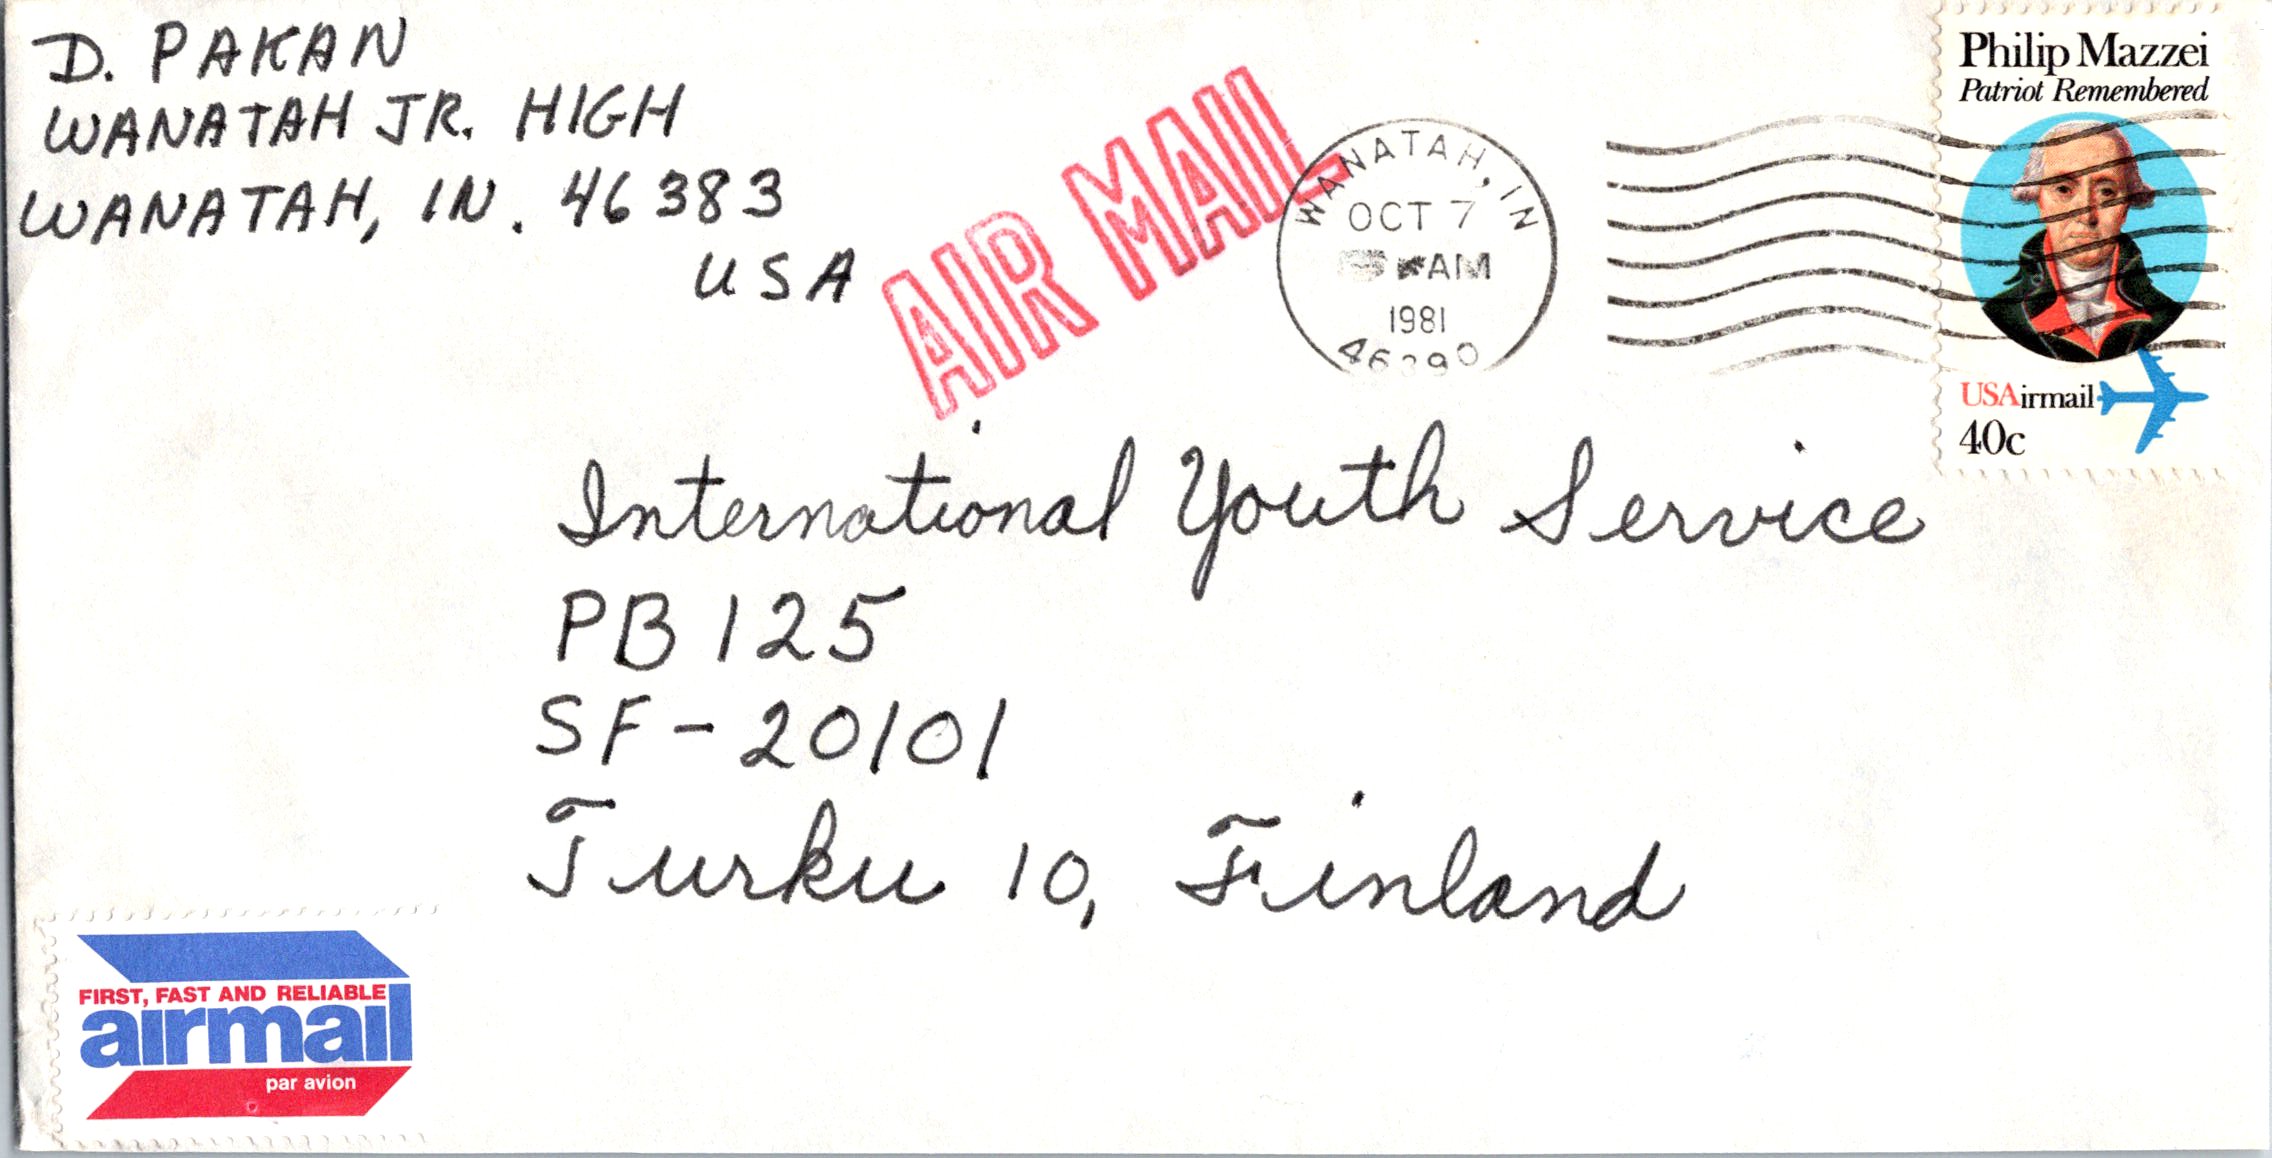 D. PAKAN
WANATAH JR. HIGH
WANATAH, IN. 46383
USA
AIR MAIL
WANATAH, IN
OCT 7
AM
1981
Philip Mazzei
Patriot Remembered
USAirmail
40c
International Youth Service
PB 125
SF-20101
Turku 10, Finland
FIRST, FAST AND RELIABLE
airmail
par avion